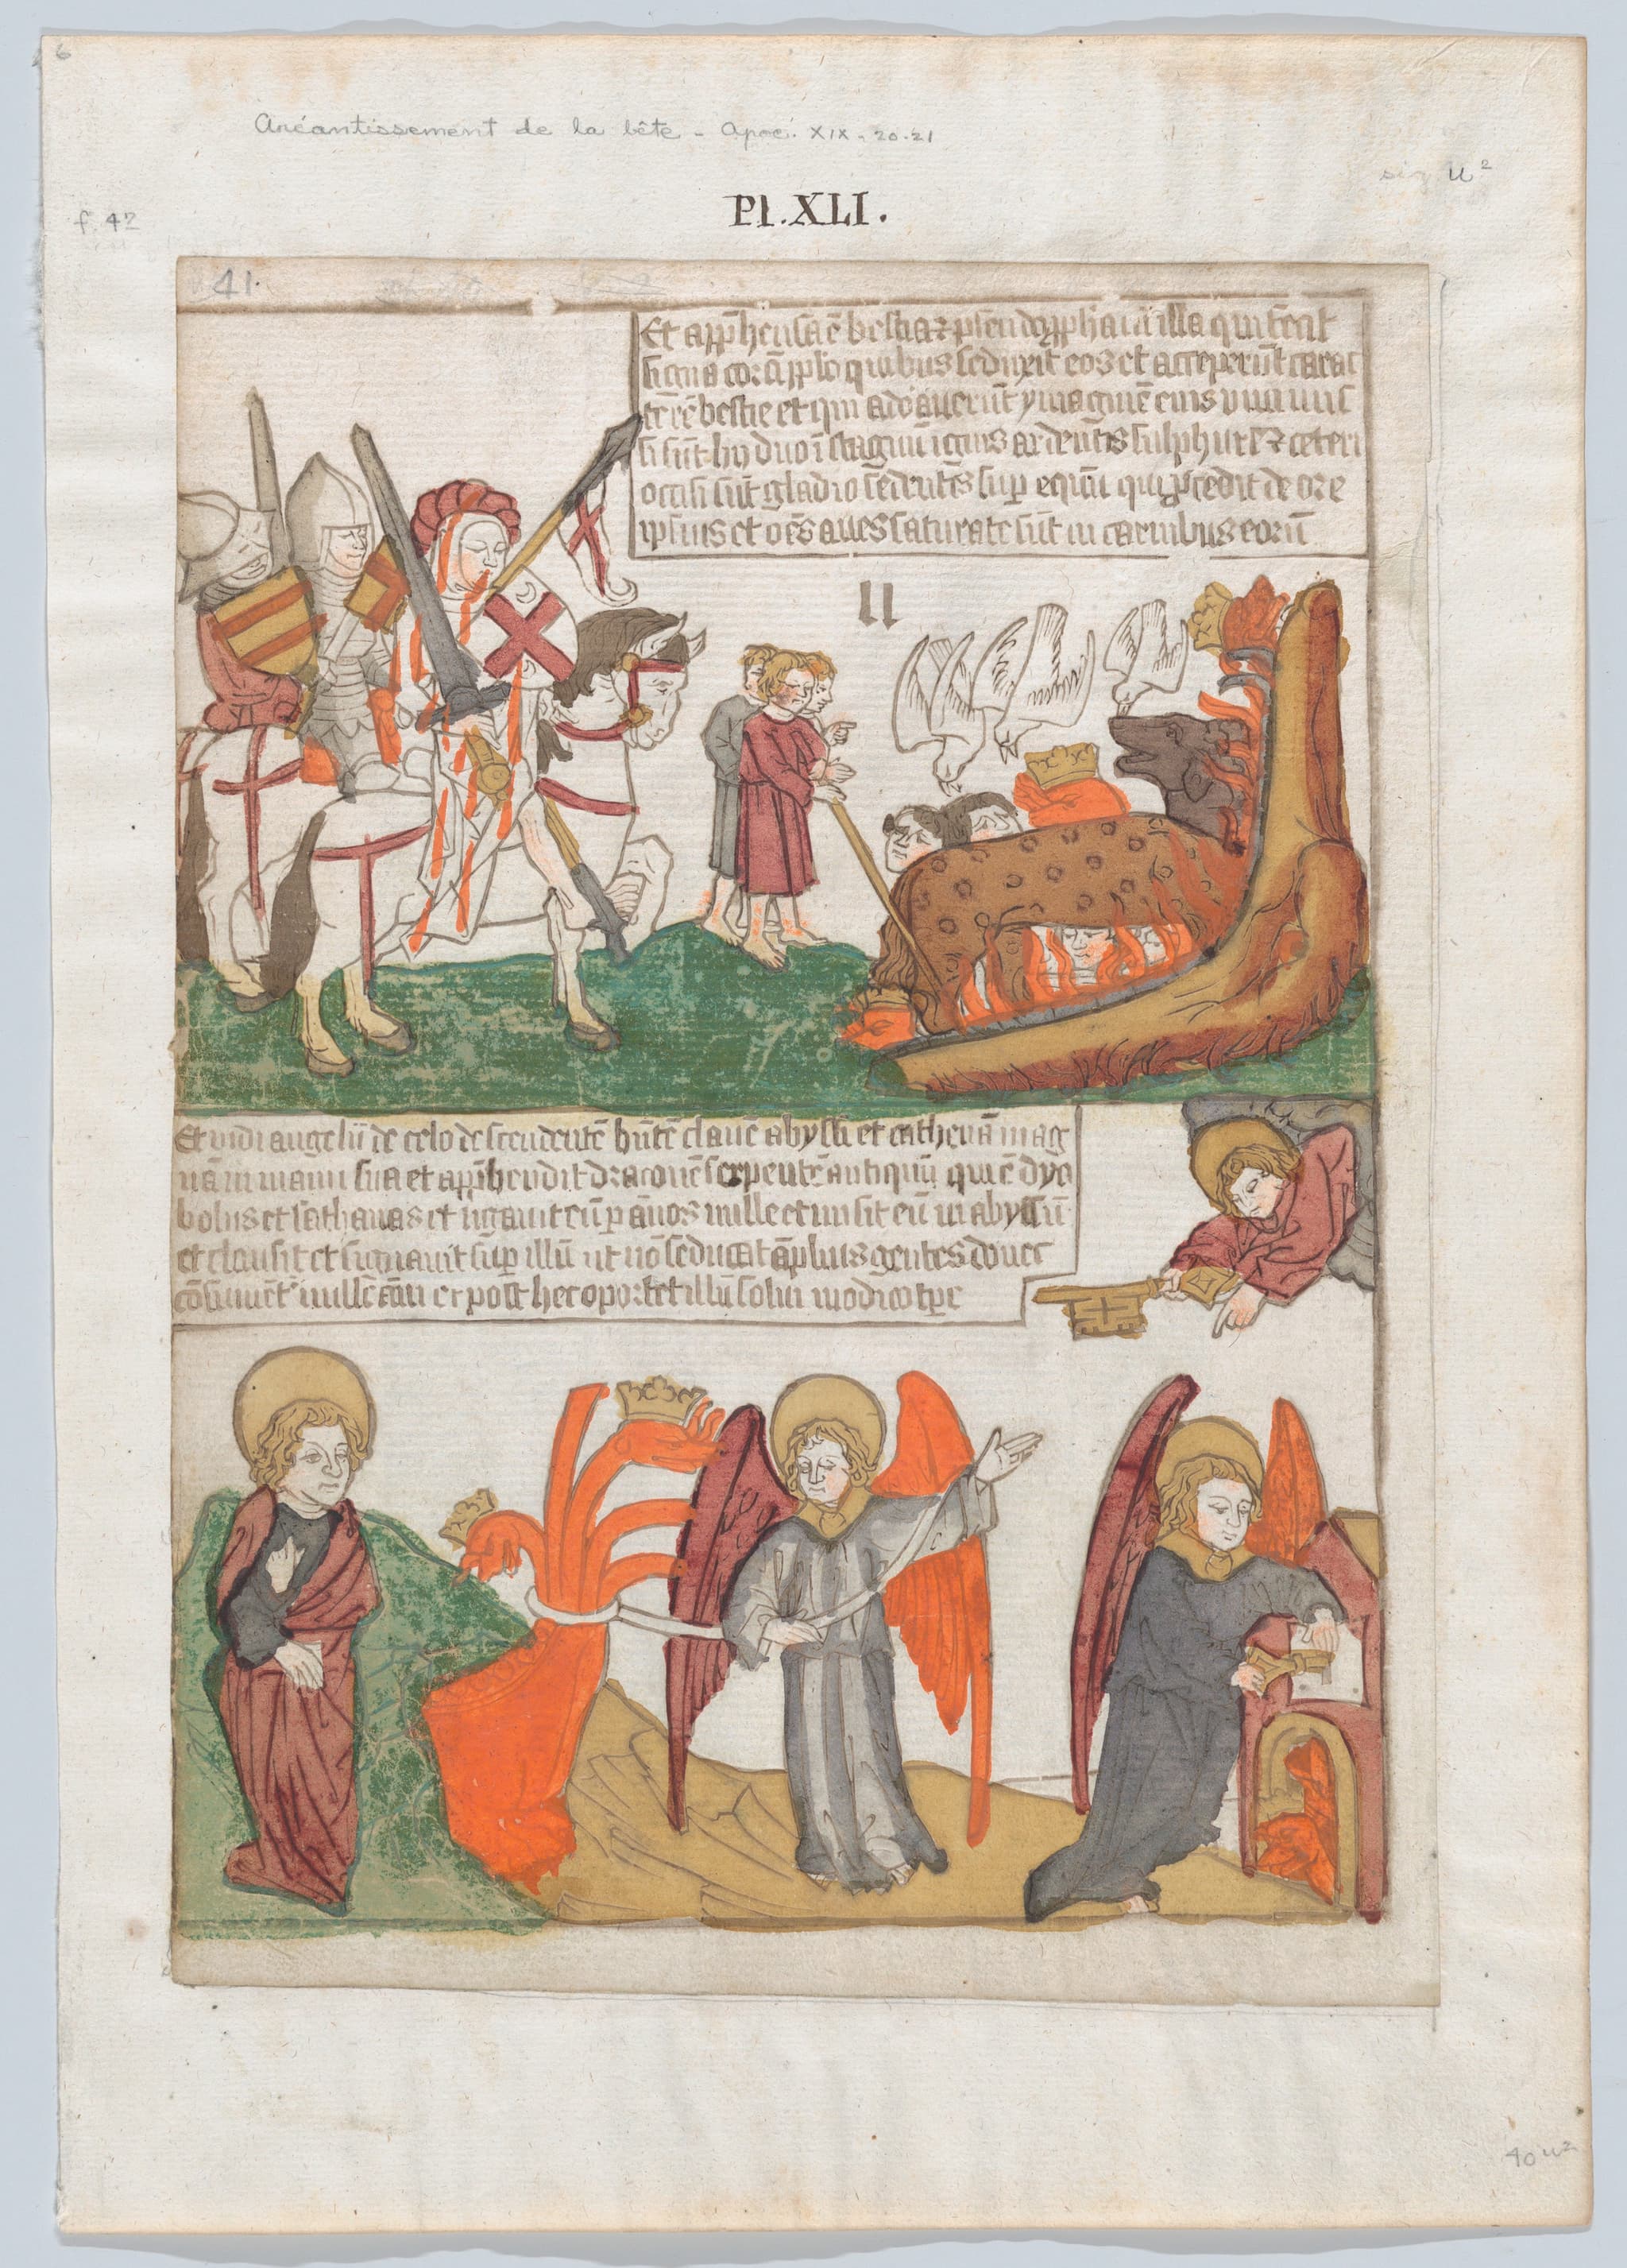 6
Anéantissement de la bête - Apoc. XIX - 20-21
sig u²
f. 42
Pl. XLI.
41.
Et app̄hensa ē bestia ⁊ pseudopp̄ha cū illa qui fecit
signa corā ip̄o quibus seduxit eos et acceperūt carac
terē bestie et qui adorauerūt ymaginē eius viui mis
si sūt hij duo ī stagnū ignis ardentis sulphure ⁊ ceteri
occisi sūt gladio sedentis sup equū qui pcedit de ore
ipsius et oēs aues saturate sūt in carnibus eorū
u
Et vidi angelū de celo descendentē hn̄tē clauē abyssi et cathenā mag
nā in manu sua et app̄hendit draconē serpentē antiquū qui ē dya
bolus et sathanas et ligauit eū p annos mille et misit eū in abyssū
et clausit et signauit sup illū ut nō seducat āplius gentes donec
cōsumēt mille āni et post hec oportet illū solui modico tpe
40 u²